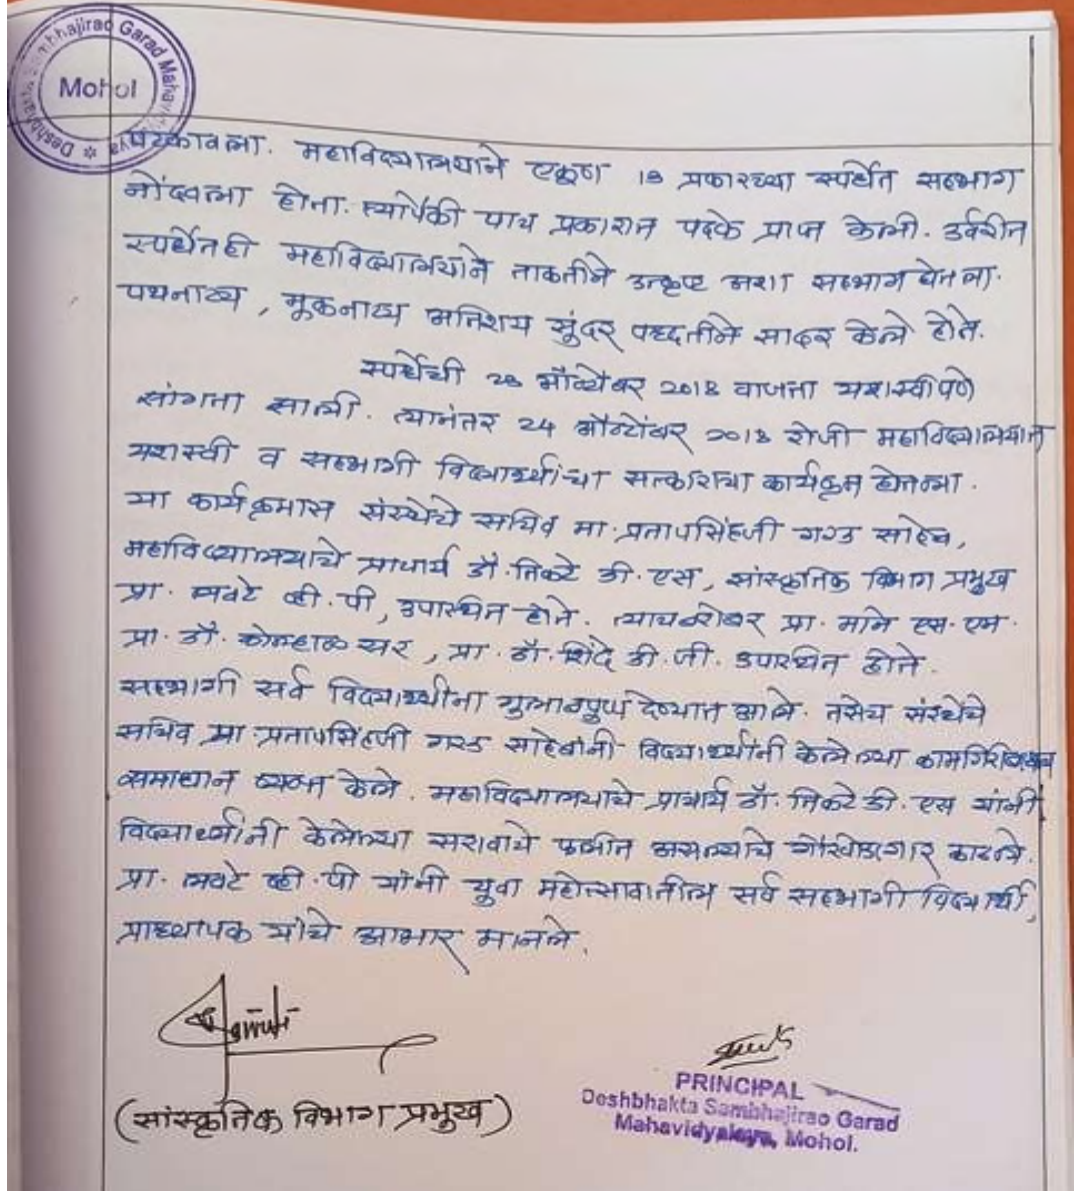 Deshbhakta Sambhajirao Garad Mahavidyalaya
Mohol
पटकावला. महाविद्यालयाने एकूण 18 प्रकारच्या स्पर्धेत सहभाग
नोंदवला होता. त्यापैकी पाच प्रकारात पदके प्राप्त केली. उर्वरीत
स्पर्धेतही महाविद्यालयाने ताकतीने उत्कृष्ट अशा सहभाग घेतला.
पथनाट्य, मूकनाट्य अतिशय सुंदर पध्दतीने सादर केले होते.
स्पर्धेची 23 ऑक्टोबर 2018 वाजता यशस्वीपणे
सांगता झाली. त्यानंतर 24 ऑक्टोंबर 2018 रोजी महाविद्यालयात
यशस्वी व सहभागी विद्यार्थ्यांचा सत्काराचा कार्यक्रम घेतला.
या कार्यक्रमास संस्थेचे सचिव मा. प्रतापसिंहजी गरड साहेब,
महाविद्यालयाचे प्राचार्य डॉ. निकटे डी. एस, सांस्कृतिक विभाग प्रमुख
प्रा. लवटे व्ही. पी, उपास्थित होते. त्याचबरोबर प्रा. माने एस. एम.
प्रा. डॉ. कोल्हाळ सर, प्रा. डॉ. शिंदे डी. जी. उपस्थित होते.
सहभागी सर्व विद्यार्थ्यीना गुलाबपुष्प देण्यात आले. तसेच संस्थेचे
सचिव मा प्रतापसिंहजी गरड साहेबांनी विद्यार्थ्यांनी केलेल्या
समाधान व्यक्त केले. महाविद्यालयाचे प्राचार्य डॉ. निकटे डी. एस यांनी
विद्यार्थ्यांनी केलेल्या सरावाचे फलीत असल्याचे गौरवोद्गार काढले.
प्रा. लवटे व्ही. पी यांनी युवा महोत्सवातील सर्व सहभागी विद्यार्थी,
प्राध्यापक यांचे आभार मानले.
(सांस्कृतिक विभाग प्रमुख)
PRINCIPAL
Deshbhakta Sambhajirao Garad
Mahavidyalaya, Mohol.